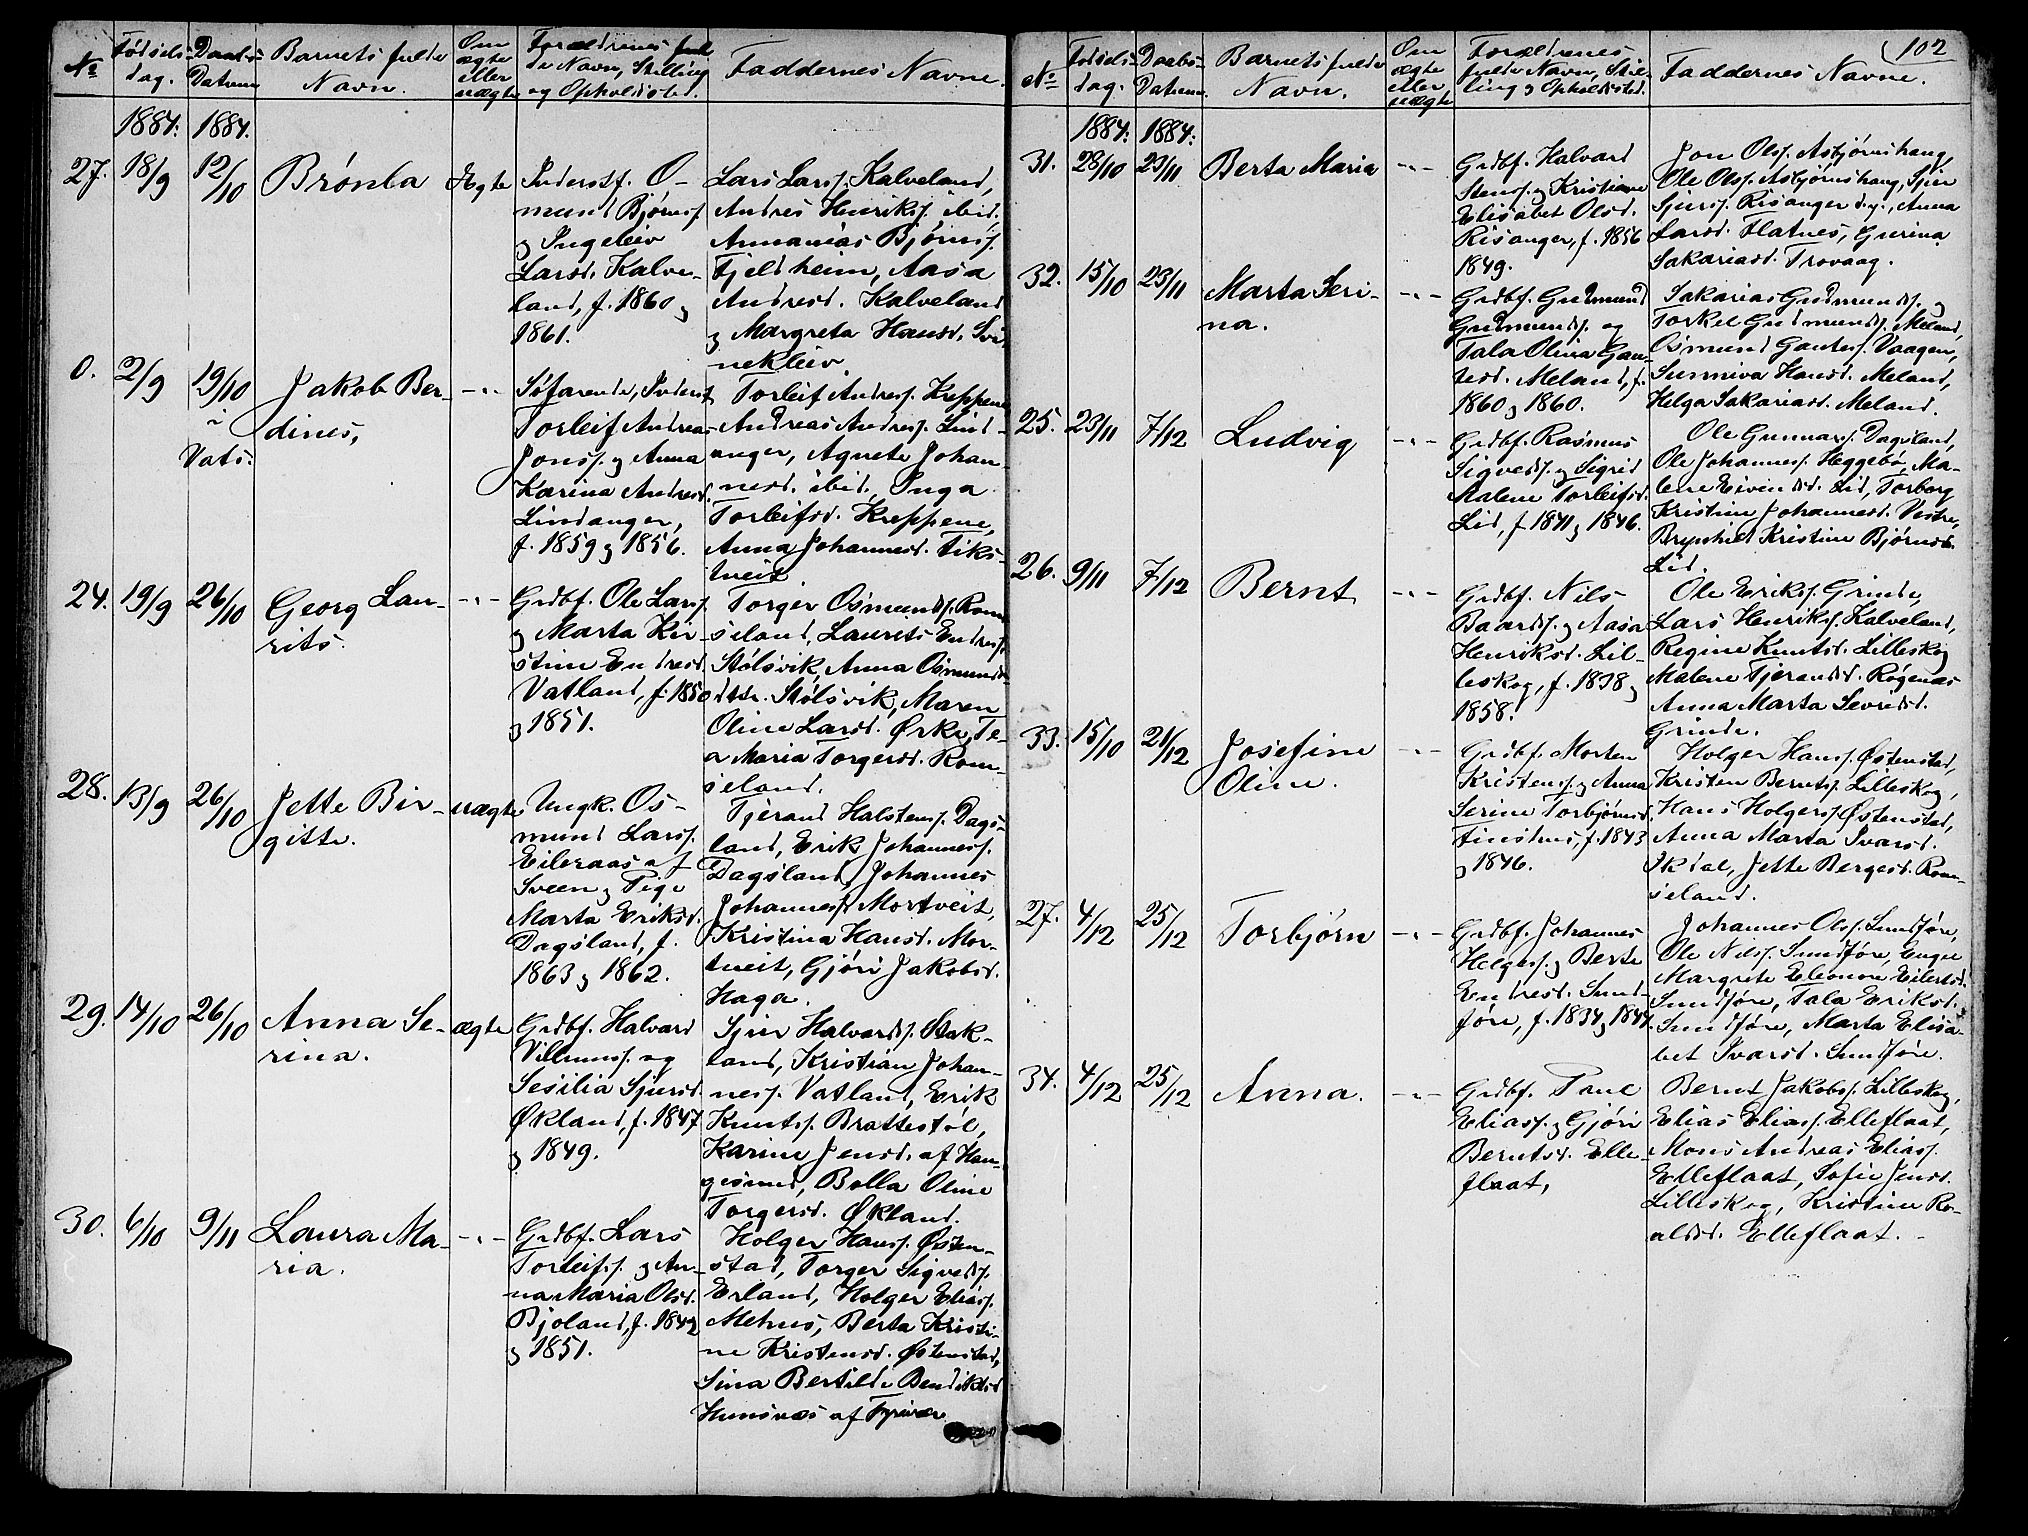 No
Fødsels-
dag.
Daabs-
Datum
Barnets fulde
Navn.
Om
ægte
eller
uægte
Forældrenes ful
de Navn, Stilling
og Opholdsted.
Faddernes Navne.
1884.
1884.
27.
18/9
12/10
Brónla
Ægte
Inderstf. O-
mund Bjørns.
og Ingeleiv
Larsd. Kalve-
land, f. 1860 og
1861.
Lars Larss. Kalveland,
Andres Henriks. ibid.,
Annanias Bjørns.
Fjeldheim, Aasa
Andresd. Kalveland
og Margreta Hansd. Svi-
nekleiv.
0.
2/9
19/10
i
Vats.
Jakob Ber-
dines,
-"-
Søfarende, Inderst
Torleif Andreas
Jonss. og Anna
Karina Andresd.
Lindanger,
f. 1859 og 1856.
Torleif Andress. Kreppene
Andreas Andress. Lind-
anger, Agnete Johan-
nesd. ibid., Inga
Torleifsd. Kreppene,
Anna Johannesd. Fiks-
tveit
24.
19/9
26/10
Georg Lau-
rits.
-"-
Grdbf. Ole Larss.
og Marta Kir-
stine Endresd.
Vatland, f. 1850
og 1851.
Torger Osmunds. Rom-
seland, Laurits Endress.
Stølsvik, Anna Osmunds-
dttr. Stølsvik, Maren
Oline Larsd. Ørke, Te-
a Maria Torgersd. Rom-
seland.
28.
13/9
26/10
Jette Bir-
gitte.
uægte
Ungk. Os-
mund Larss.
Eileraas af
Sveen og Pige
Marta Eriksd.
Dagsland, f.
1863 og 1862.
Tjerand Halstens. Dags-
land, Erik Johanness.
Dagsland, Johannes
Johanness. Mortveit,
Kristina Hansd. Mor-
tveit, Gjøri Jakobsd.
Haga.
29.
14/10
26/10
Anna Se-
rina.
ægte
Grdbf. Halvard
Villumss. og
Sesilia Sjursd.
Økland, f. 1847
og 1849.
Sjur Halvards. Stak-
land, Kristian Johan-
ness. Vatland, Erik
Knuts. Brattestøl,
Karine Jensd. af Hau-
gesund, Bolla Oline
Torgersd. Økland.
30.
6/10
9/11
Laura Ma-
ria.
-"-
Grdbf. Lars
Torleifs. og An-
na Maria Olsd.
Bjoland, f. 1842
og 1851.
Holger Hans. Østen-
stad, Torger Sigveds.
Erland, Holger Elias.
Mehus, Berta Kristi-
ne Kristensd. Østenstad,
Sina Bertilde Bendiksd.
Hunsvæs af Tysvær
102
No
Fødsels-
dag.
Daabs-
Datum.
Barnets fulde
Navn.
Om
ægte
eller
uægte
Forældrenes
fulde Navn, Stil-
ling og Opholdsted.
Faddernes Navne.
1884.
1884.
31.
28/10
23/11
Berta Maria
-"-
Grdbf. Halvard
Stens. og Kristiane
Elisabet Olsd.
Risanger, f. 1856
1849.
Jon Ols. Asbjørnshaug,
Ole Ols. Asbjørnshaug, Sjur
Sjurs. Risanger d.y., Anna
Larsd. Flatnes, Gurina
Sakariasd. Trovaag.
32.
15/10
23/11
Marta Seri-
na.
-"-
Grdbf. Gudmund
Gudmunds. og
Tala Olina Gau-
tesd. Meland, f.
1860 og 1860.
Sakarias Gudmunds. og
Torkel Gudmunds. Meland,
Osmund Gautes. Vaagen,
Sunniva Hansd. Meland,
Helga Sakariasd. Meland.
25.
23/11
7/12
Ludvig
-"-
Grdbf. Rasmus
Sigveds. og Sigrid
Malene Torleifsd.
Lid, f. 1841 og 1846.
Ole Gunnars. Dagsland,
Ole Johanness. Heggebø, Ma-
lene Eivendsd. Lid, Torborg
Kristine Johannesd. Vestre,
Brynhild Kristine Bjørnsd.
Lid.
26.
9/11
7/12
Bernt
-"-
Grdbf. Nils
Baards. og Aasa
Henriksd. Lil-
leskog, f. 1838 og
1858.
Ole Eriks. Grinde,
Lars Henriks. Kalveland,
Regine Knutsd. Lilleskog
Malene Tjerandsd. Røgenæs
Anna Marta Sevredsd.
Grinde.
33.
15/10
21/12
Josefine
Oline.
-"-
Grdbf. Morten
Kristens. og Anna
Serine Torbjørnsd.
Finshus, f. 1843
og 1846.
Holger Hans. Østenstad,
Kristen Bernts. Lilleskog,
Hans Holgers. Østenstad,
Anna Marta Ivarsd.
Ikdal, Jette Bergesd. Rom-
seland.
27.
4/12
25/12
Torbjørn
-"-
Grdbf. Johannes
Helges. og Berte
Endresd. Sund-
føre, f. 1834 og 1844.
Johannes Ols. Sundføre,
Ole Nils. Sundføre, Engel
Margrete Eleonore Eilertsd.
Sundføre, Tala Eriksd.
Sundføre, Marta Elisa-
bet Ivarsd. Sundføre.
34.
4/12
25/12
Anna.
-"-
Grdbf. Tane
Elias. og Gjøri
Berntsd. Elle-
flaat,
Bernt Jakobs. Lilleskog,
Elias Elias. Elleflaat,
Mons Andreas Elias.
Elleflaat, Sofie Jensd.
Lilleskog, Kristine Ro-
aldsd. Elleflaat. -